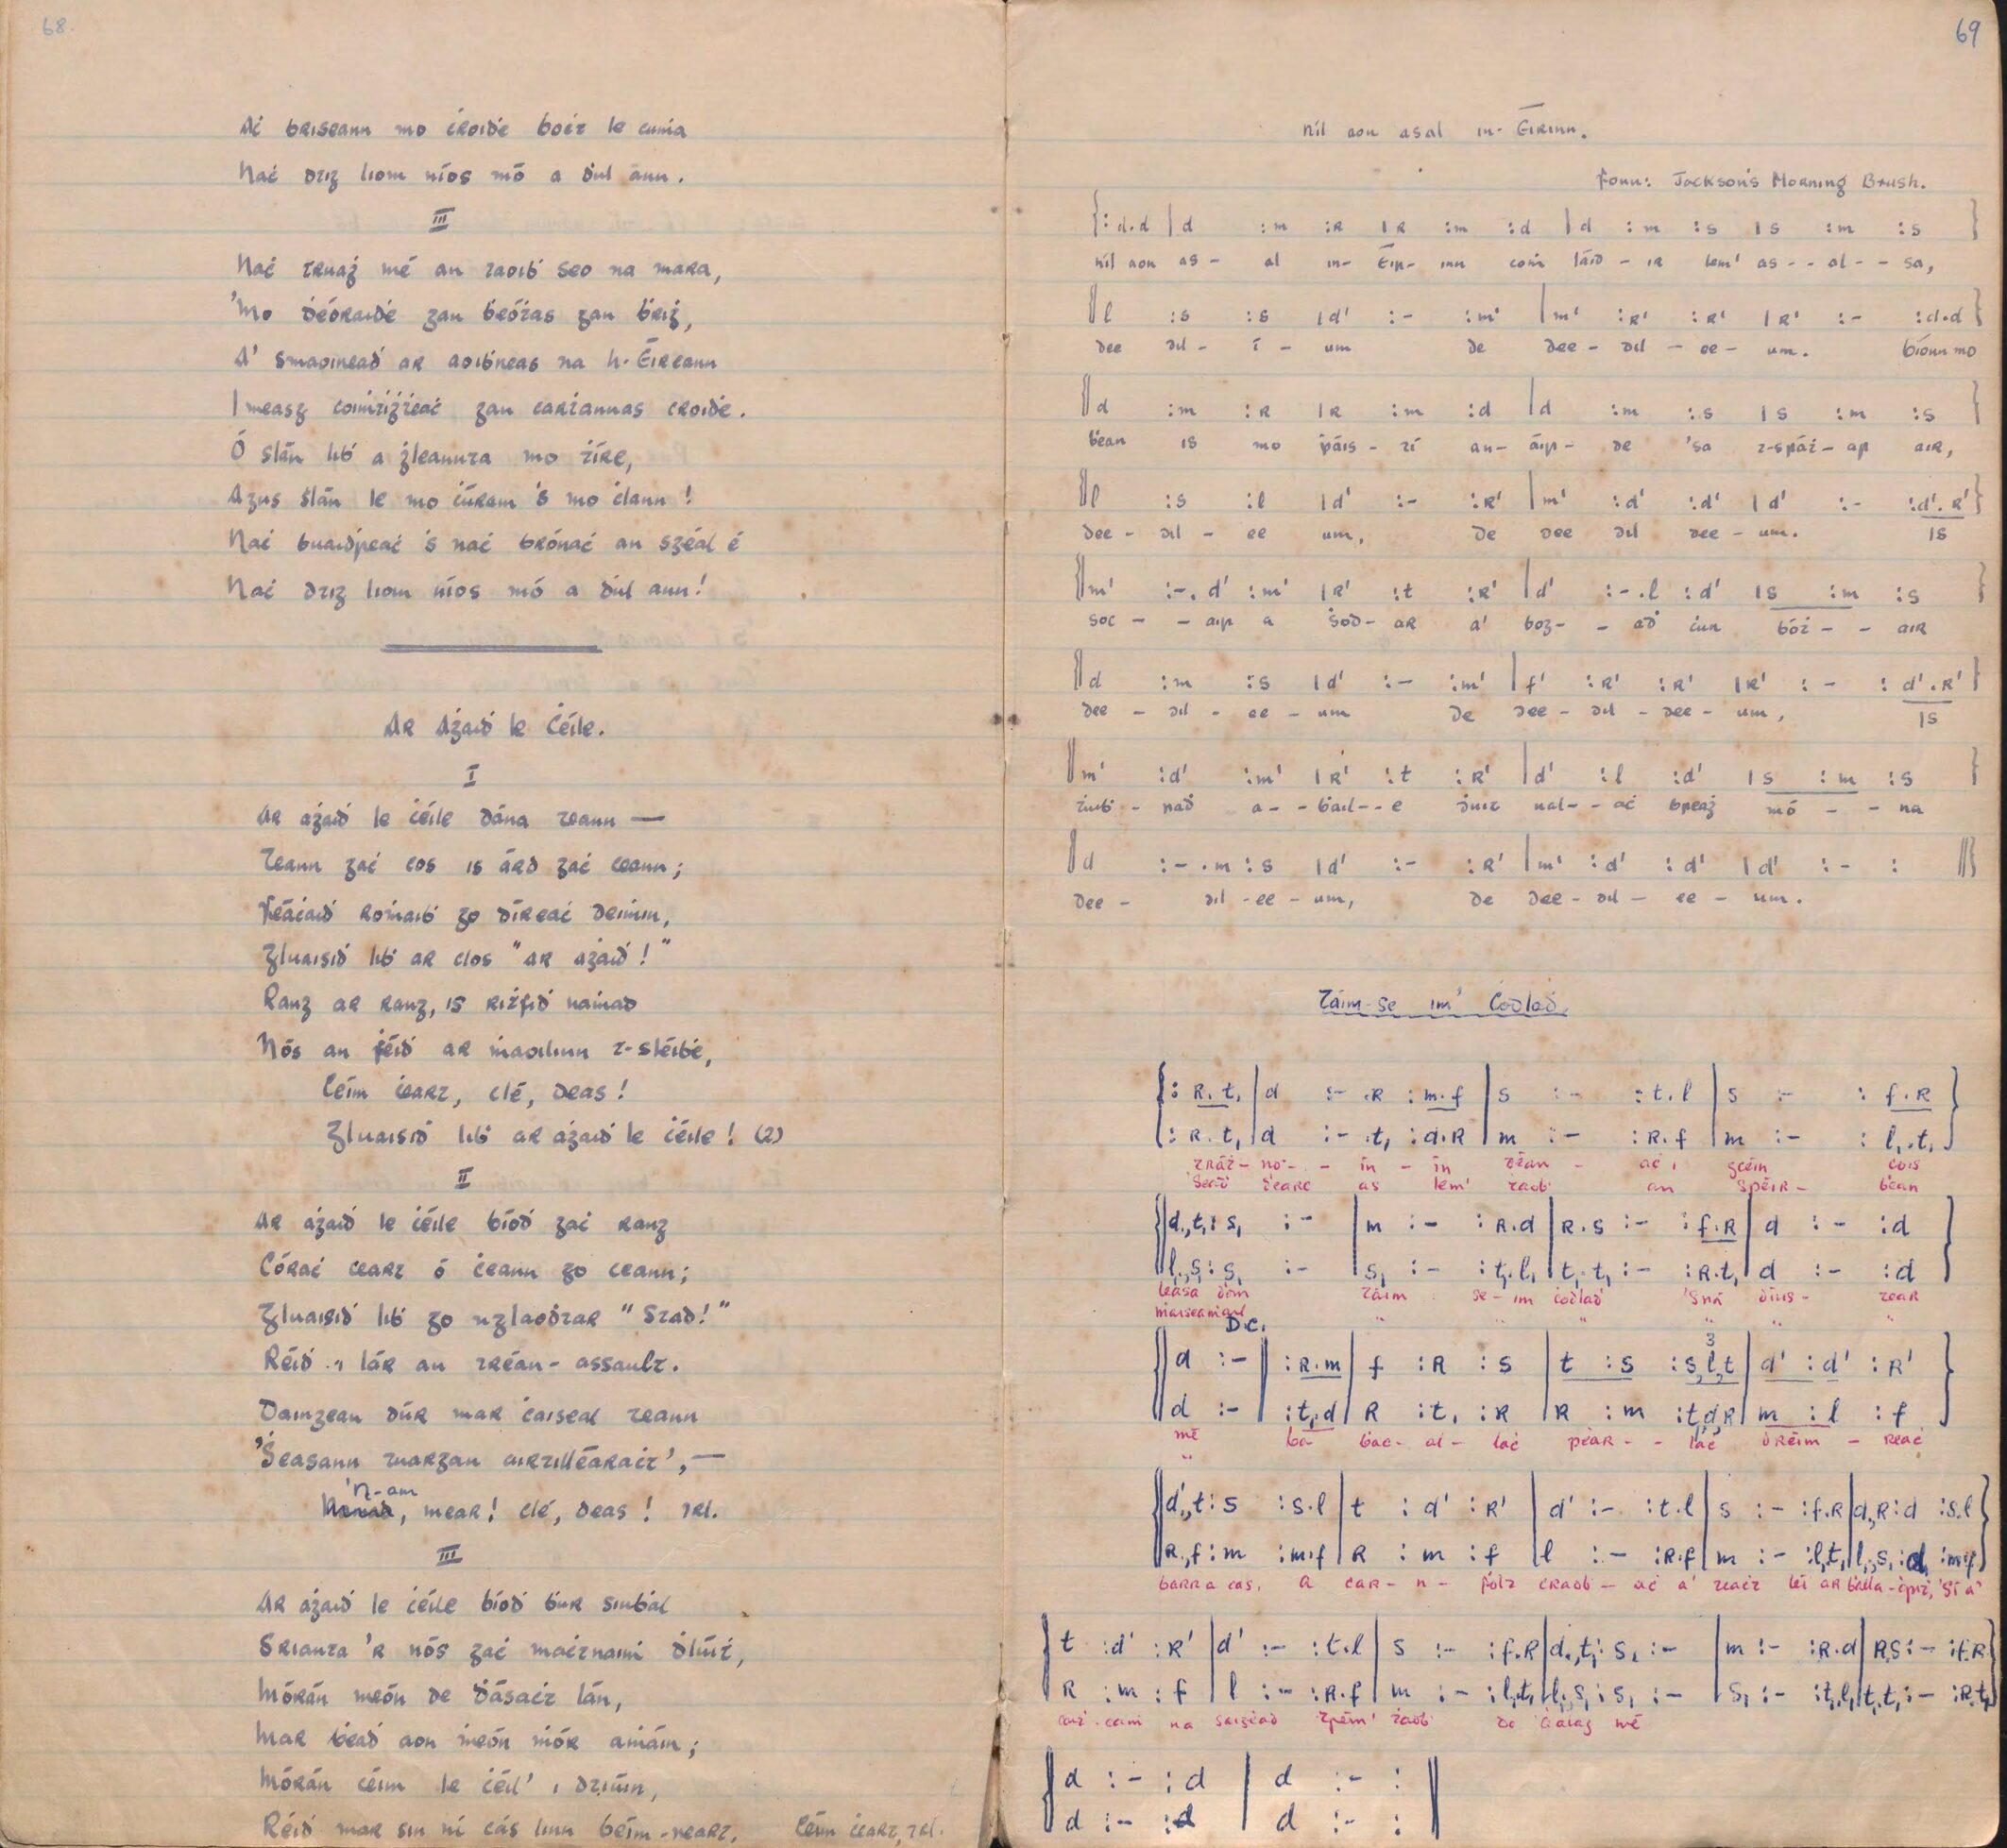 68.
Aċ briseann mo ċroiḋe boċt le cuṁa
Naċ dtig liom níos mó a ḋul ann.
III
Naċ truaġ mé an taoiḃ seo na mara,
'Mo ḋeóraiḋe gan ḃeóṫas gan ḃríġ,
A' smaoineaḋ ar aoiḃneas na h-Éireann
I measg coiṁtiġṫeaċ gan carṫannas croiḋe.
Ó slán liḃ a ġleannta mo ṫíre,
Agus slán le mo ċúram 's mo ċlann!
Naċ buaiḋṗeaċ 's naċ brónaċ an sgéal é
Naċ dtig liom níos mó a ḋul ann!
Ar Aġaiḋ le Ċéile.
I
Ar aġaiḋ le ċéile dána teann —
Teann gaċ cos is árd gaċ ceann;
Féaċaiḋ roṁaiḃ go díreaċ deiṁin,
Gluaisiḋ liḃ ar clos "ar aġaiḋ!"
Rang ar rang, is riṫfiḋ náṁad
Nós an ḟéiḋ ar ṁaoilinn t-sléiḃe,
Céim ċeart, clé, deas!
Gluaisiḋ liḃ ar aġaiḋ le ċéile! (2)
II
Ar aġaiḋ le ċéile bíoḋ gaċ rang
Córaċ ceart ó ċeann go ceann;
Gluaisiḋ liḃ go nglaoḋtar "Stad!"
Réiḋ i lár an tréan-assault.
Daingean dúr mar ċaiseal teann
'Ṡeasann tuargan airtilléaraċt',—
'n-am, mear! clé, deas! ⁊rl.
III
Ar aġaiḋ le ċéile bíoḋ ḃur siuḃal
Srianta 'r nós gaċ maċtnaṁ ḋlúiṫ,
Mórán meón de ḋásaċt lán,
Mar ḃeaḋ aon ṁeón ṁór aṁáin;
Mórán céim le ċéil' i dtiúin,
Réiḋ mar sin ní cás linn béim-neart, Céim ċeart, ⁊rl.
69
Níl aon asal in-Éirinn.
Fonn: Jackson's Morning Brush.
{: d.d | d : m : R | R : m : d | d : m : s | s : m : s }
Níl aon as - al in- Éir- inn coṁ láid - ir lem' as - - al - - sa,
‖ l : s : s | d' : - : m' | m' : R' : R' | R' : - : d.d }
dee dil - í - um de dee - dil - ee - um. Bíonn mo
‖ d : m : R | R : m : d | d : m : s | s : m : s }
ḃean is mo ṗáis - tí an- áir- de 'sa t-sráṫ - ar air,
‖ l : s : l | d' : - : R' | m' : d' : d' | d' : - : d'.R' }
dee - dil - ee um, de dee dil dee - um. Is
‖ m' : -. d' : m' | R' : t : R' | d' : - .l : d' | s : m : s }
soc - - air a ṡod- ar a' bog- - aḋ ċun bóṫ - - air
‖ d : m : s | d' : - : m' | f' : R' : R' | R' : - : d'.R' }
dee - dil - ee - um de dee - dil - dee - um, Is
‖ m' : d' : m' | R' : t : R' | d' : l : d' | s : m : s }
ṫiuḃ - raḋ a - - ḃail - - e ḋuit ual - - aċ breaġ mó - - na
‖ d : - .m : s | d' : - : R' | m' : d' : d' | d' : - : ‖
dee - dil - ee - um, de dee - dil - ee - um.
Táim-se im' Ċodlaḋ.
{: R.t, | d : - .R : m.f | s : - : t.l | s : - : f.R }
{: R.t, | d : - .t, : d.R | m : - : R.f | m : - : l,.t, }
Tráṫ- nó- - ín - ín déan - aċ i gcéin cois
'Seaḋ ḋearc as lem' taoḃ an spéir - ḃean
‖ d.,t, : s, : - | m : - : R.d | R.s : - : f.R | d : - : d }
‖ l,.,s, : s, : - | s, : - : t,.l, | t,.t, : - : R.t, | d : - : d }
leasa ḋom Táim se - im ċodlaḋ 'sná dúis - tear
D.C.
‖ d : - ‖ : R.m | f : R : s | t : s : s,l,t | d' : d' : R' }
3
‖ d : - | : t,.d | R : t, : R | R : m : t,dR | m : l : f }
mé ba- ċac- al - laċ péar - - laċ dréim - reaċ
‖ d'.,t : s : s.l | t : d' : R' | d' : - : t.l | s : - : f.R | d.,R : d : s.l }
‖ R.,f : m : m.f | R : m : f | l : - : R.f | m : - : l,.t, | l,.,s, : d, : m.f }
barra cas, a car - n - folt craoḃ - aċ a' teaċt léi ar
‖ t : d' : R' | d' : - : t.l | s : - : f.R | d.,t, : s, : - | m : - : R.d | R.s : - : f.R }
‖ R : m : f | l : - : R.f | m : - : l,.t, | l,.,s, : s, : - | s, : - : t,.l, | t,.t, : - : R.t, }
na saiġead ṫaoḃ mé
‖ d : - : d | d : - : ‖
d : - : d | d : - : ‖